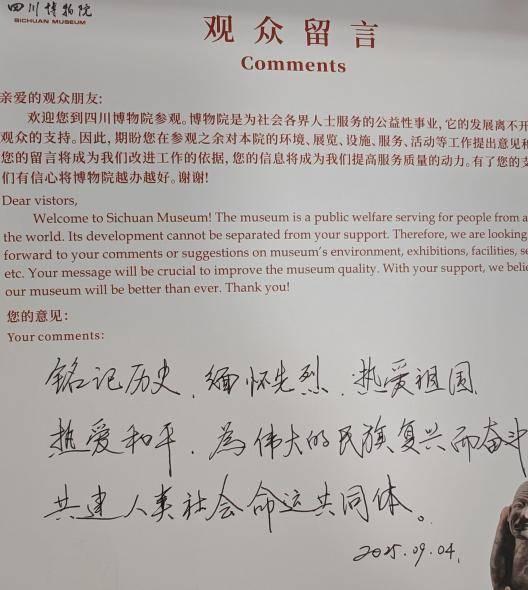 四川博物院
SICHUAN MUSEUM
观众留言
Comments
亲爱的观众朋友:
欢迎您到四川博物院参观。博物院是为社会各界人士服务的公益性事业,它的发展离不开
观众的支持。因此,期盼您在参观之余对本院的环境、展览、设施、服务、活动等工作提出意见和
您的留言将成为我们改进工作的依据,您的信息将成为我们提高服务质量的动力。有了您的支
们有信心将博物院越办越好。谢谢!
Dear vistors,
Welcome to Sichuan Museum! The museum is a public welfare serving for people from a
the world. Its development cannot be separated from your support. Therefore, we are looking
forward to your comments or suggestions on museum's environment, exhibitions, facilities, se
etc. Your message will be crucial to improve the museum quality. With your support, we belie
our museum will be better than ever. Thank you!
您的意见:
Your comments:
铭记历史、缅怀先烈、热爱祖国
热爱和平、为伟大的民族复兴而奋斗
共建人类社会命运共同体。
2025.09.04.